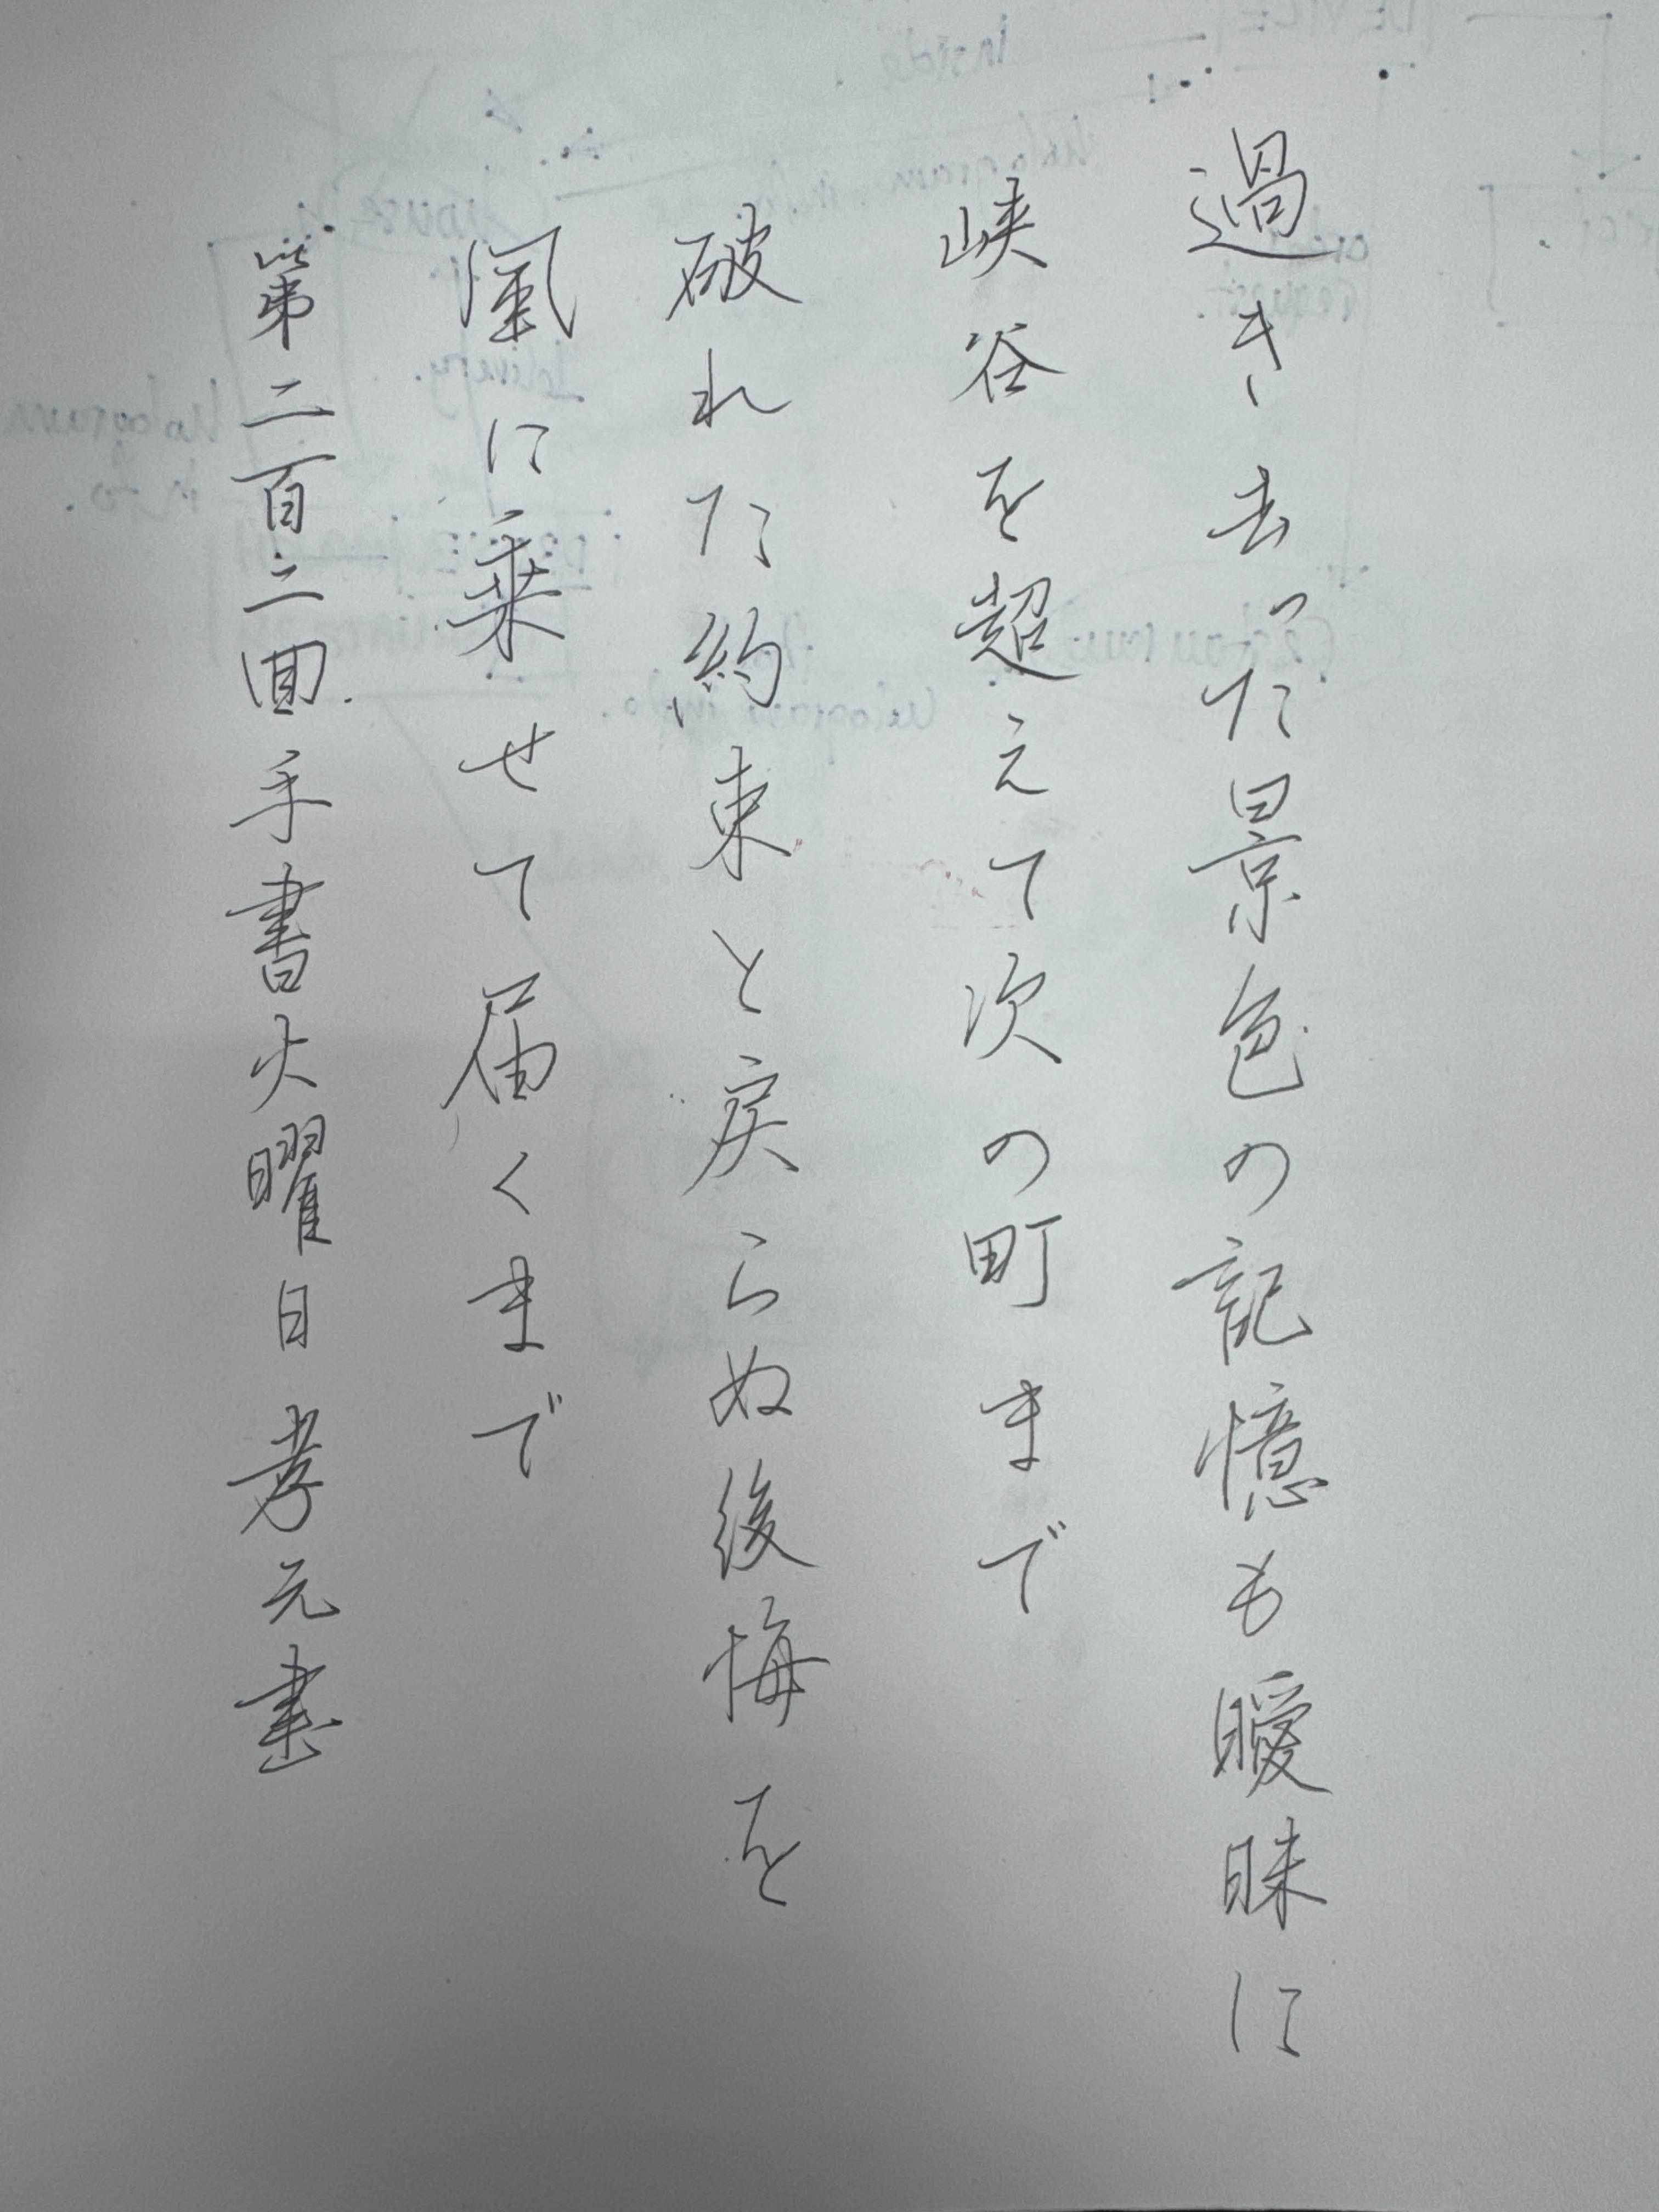 過き去った景色の記憶も曖昧に
峡谷を超えて次の町まで
破れた約束と戻らぬ後悔を
風に乗せて届くまで
第二百二回手書火曜日孝元書